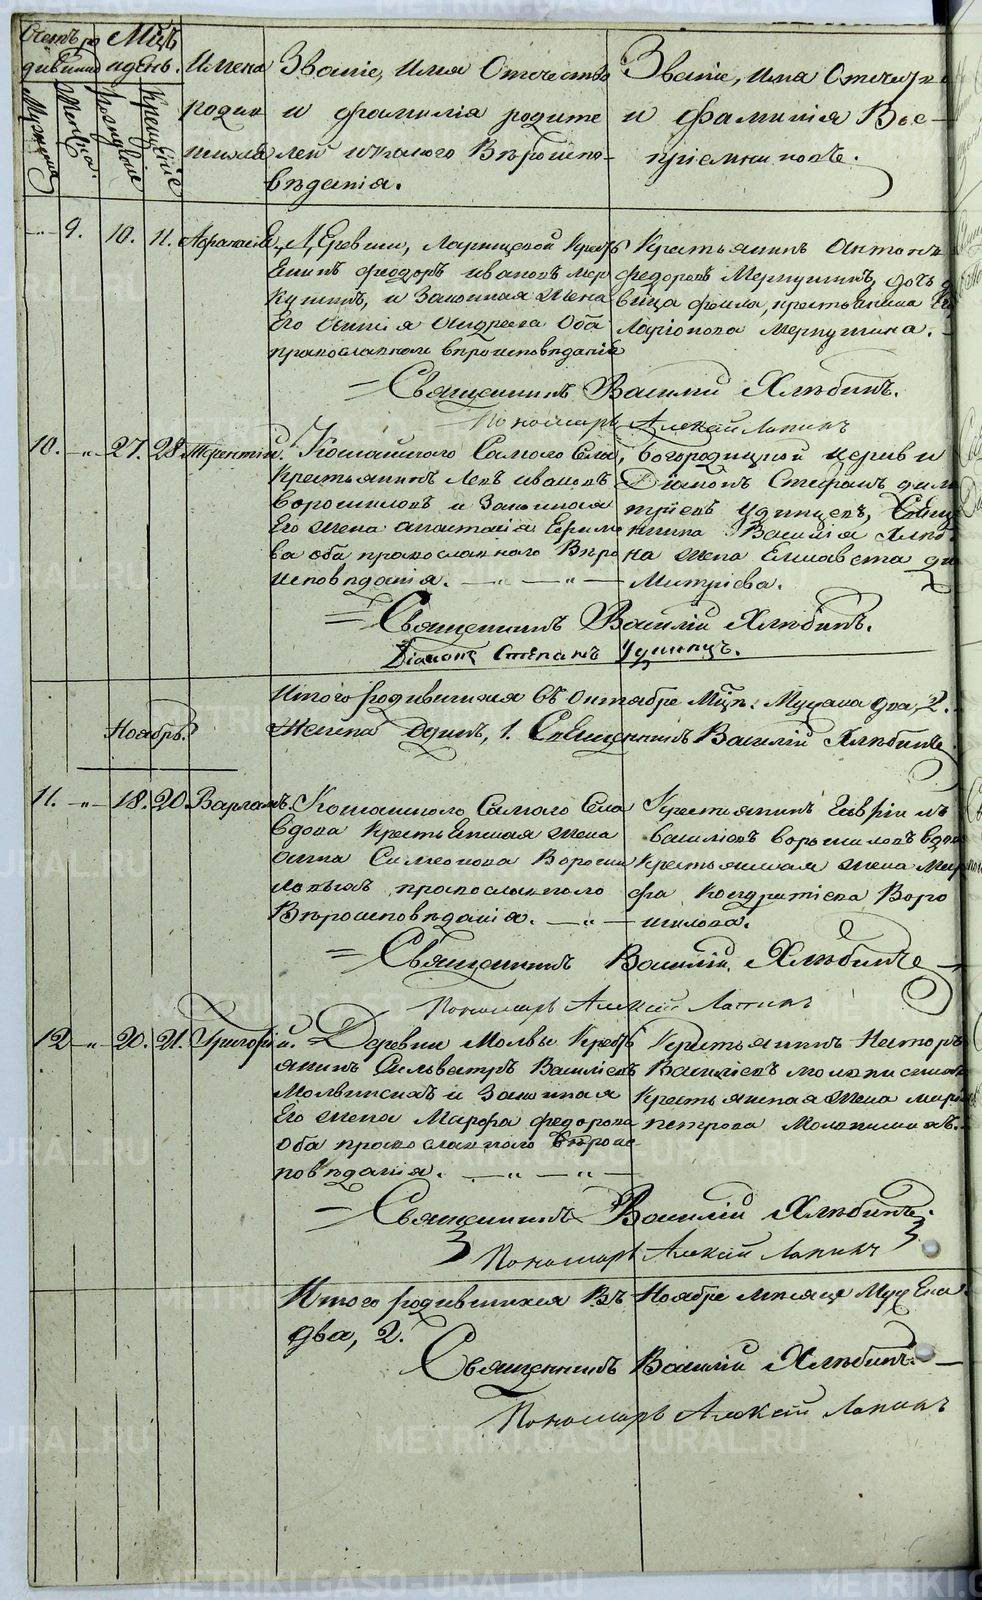 Счетъ родившихся
Мужеска
Женска
Мцъ и день.
Рожденія
Крещенія
Имена родившихся
Званіе, имя Отчество
и фамилія родите
лей и какого Вѣроиспо-
вѣданія.
Званіе, имя Отчество
и фамилія Вос-
пріемниковъ.
9. 10. 11. Афанасія
Деревни, Ларищевой Крестьъ
Феодоръ ивановъ Мер
кушинъ, и Законная жена
Его Андреева Оба
православнаго вѣроисповѣданія
Крестьянинъ Антонъ
федоровъ Меркушинъ, дочь д
вица фекла, крестьянина
Ларіонова меркушина.
Священникъ Василій Хлѣбинъ.
Пономарь Алексѣй Лапинъ
10. 27. 28 Терентій.
Кошайского Самого Села
Крестьянинъ Левъ ивановъ
Ворошиловъ и Законная
Его жена анастасія Ефимо
ва оба православнаго Вѣро
исповѣданія.
Богородицкой церкви
Діаконъ Стефанъ дим
тріевъ Удинцевъ, Свяще
нника Василія Хлѣби
на жена Елисавета ди
митріева.
Священникъ Василій Хлѣбинъ.
Діаконъ Степанъ Удинцъ.
Итого родившихся Въ Октябрѣ Мцѣ. Мужска два, 2.
Женска Одинъ, 1. Священникъ Василій Хлѣбинъ
Ноябрь.
11. 18. 20 Варлаамъ.
Кошайского Самого Села
вдова Крестьянская жена
анна Симеонова Вороши
лова православного
Вѣроисповѣданія.
Крестьянинъ Гавріилъ
васильевъ ворошиловъ вдова
Крестьянская жена Мар
фа Кондратіева Воро
шилова.
Священникъ Василій Хлѣбинъ
Пономарь Алексѣй Лапинъ
12 20. 21. Григорій.
Деревни Молвы Кресть
янинъ Сильвестръ Васильевъ
Молвинскихъ и Законная
Его жена Марфа федорова
оба православнаго вѣроис
повѣданія.
Крестьянинъ Несторъ
Васильевъ
Крестьянская жена марія
петрова
Священникъ Василій Хлѣбинъ.
Пономарь Алексѣй Лапинъ
Итого родившихся Въ Ноябрѣ мѣсяце Муж Ека
два, 2.
Священникъ Василій Хлѣбинъ.
Пономарь Алексѣй Лапинъ
METRIKI.GASO-URAL.RU